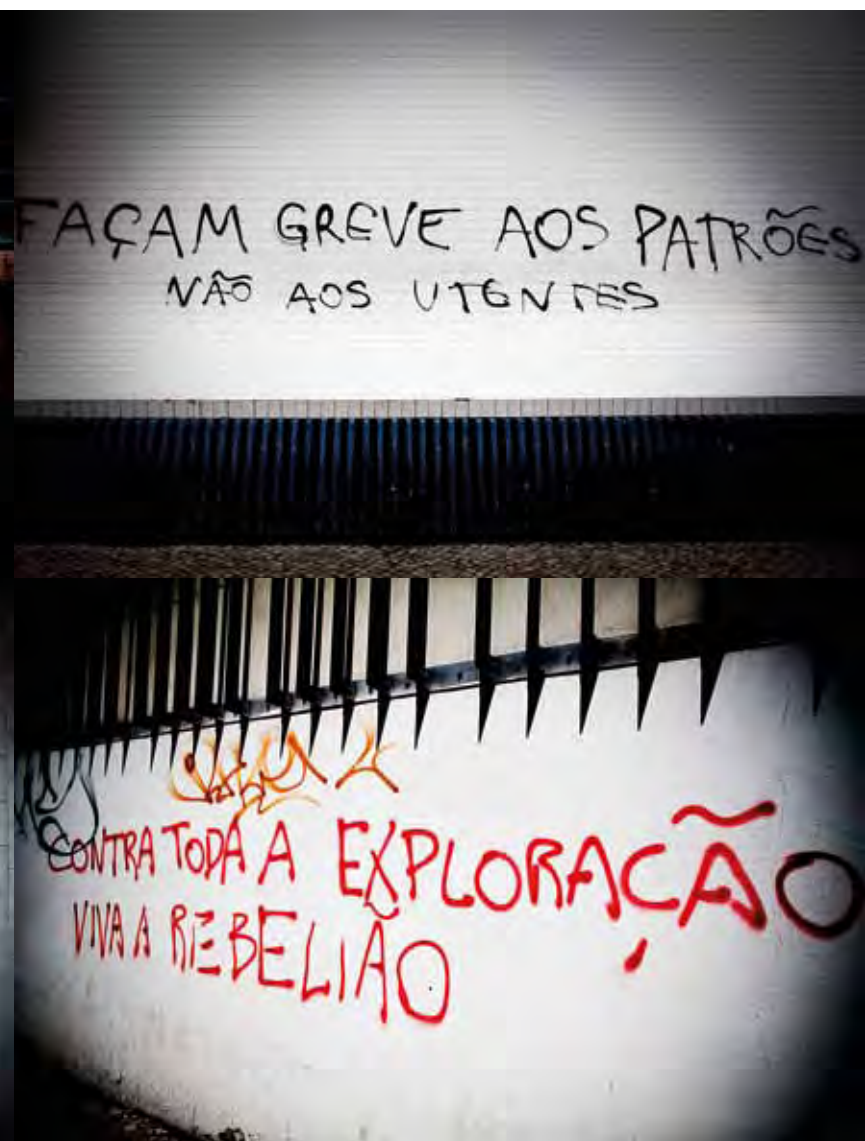 FAÇAM GREVE AOS PATRÕES
NÃO AOS UTENTES
CONTRA TODA A EXPLORAÇÃO
VIVA A REBELIÃO